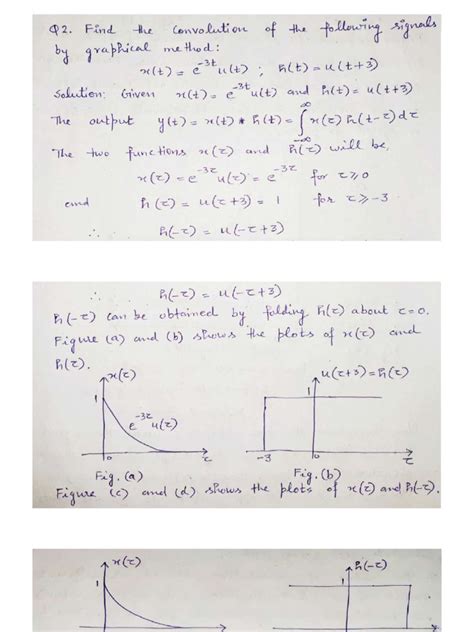 Q2. Find the Convolution of the following signals
by graphical method:
x(t) = e^{-3t} u(t) ; h(t) = u(t+3)
Solution: Given x(t) = e^{-3t} u(t) and h(t) = u(t+3)
The output y(t) = x(t) * h(t) = ∫_{-∞}^{∞} x(τ) h(t-τ) dτ
The two functions x(τ) and h(τ) will be,
x(τ) = e^{-3τ} u(τ) = e^{-3τ} for τ ≥ 0
and h(τ) = u(τ+3) = 1 for τ ≥ -3
∴ h(-τ) = u(-τ+3)
∴ h(-τ) = u(-τ+3)
h(-τ) can be obtained by folding h(τ) about τ=0.
Figure (a) and (b) shows the plots of x(τ) and
h(τ).
x(τ)
1
e^{-3τ} u(τ)
0
τ
Fig. (a)
u(τ+3) = h(τ)
1
-3
0
τ
Fig. (b)
Figure (c) and (d) shows the plots of x(τ) and h(-τ).
x(τ)
1
h(-τ)
1